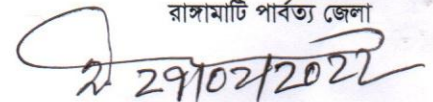 রাঙ্গামাটি পার্বত্য জেলা
29/02/2022